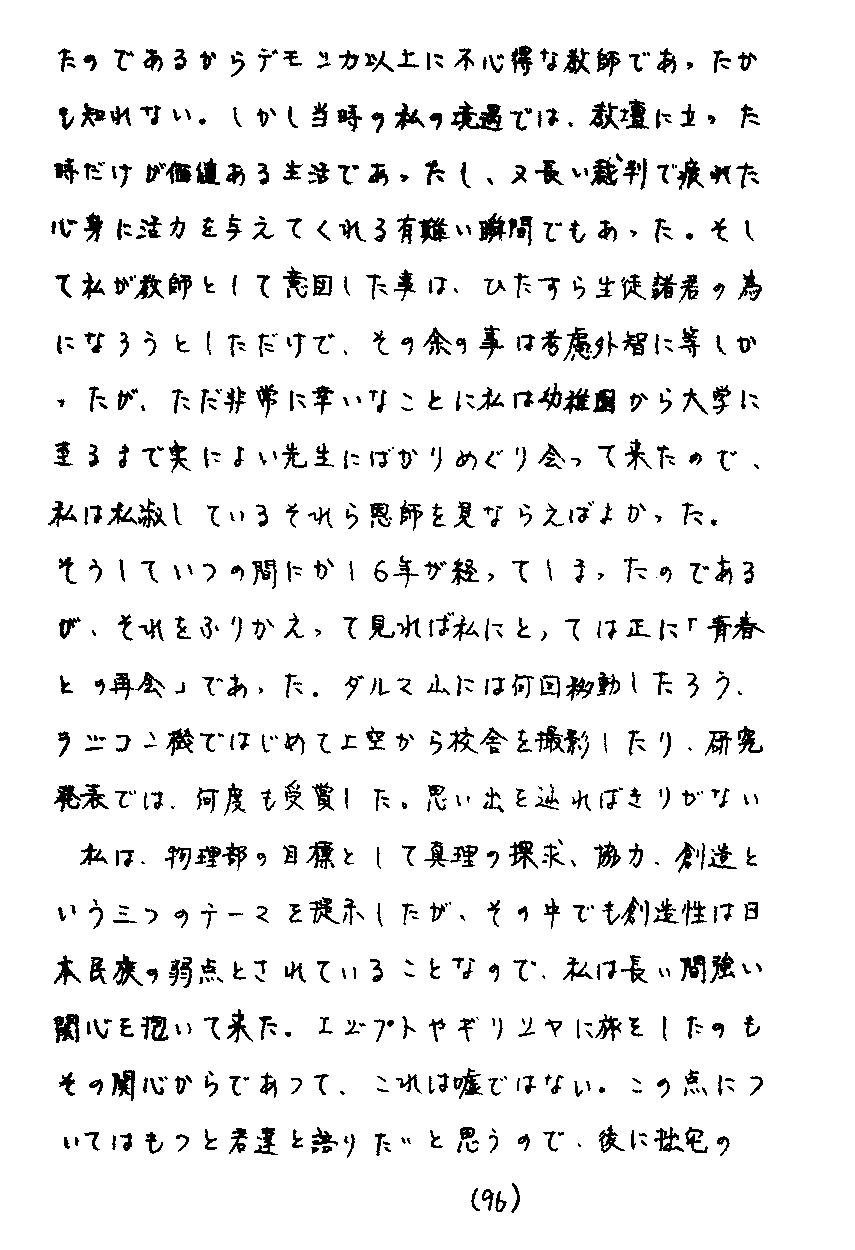 たのであるからデモシカ以上に不心得な教師であったか
も知れない。しかし当時の私の境遇では、教壇に立った
時だけが価値ある生活であったし、又長い裁判で疲れた
心身に活力を与えてくれる有難い瞬間でもあった。そし
て私が教師として意図した事は、ひたすら生徒諸君の為
になろうとしただけで、その余の事は考慮外智に等しか
ったが、ただ非常に幸いなことに私は幼稚園から大学に
至るまで実によい先生にばかりめぐり会って来たので、
私は私淑しているそれら恩師を見ならえばよかった。
そうしていつの間にか16年が経ってしまったのである
が、それをふりかえって見れば私にとっては正に「青春
との再会」であった。ダルマ山には何回移動したろう、
ラジコン機ではじめて上空から校舎を撮影したり、研究
発表では、何度も受賞した。思い出を辿ればきりがない
私は、物理部の目標として真理の探求、協力、創造と
いう三つのテーマを提示したが、その中でも創造性は日
本民族の弱点とされていることなので、私は長い間強い
関心を抱いて来た。エジプトやギリシヤに旅をしたのも
その関心からであって、これは嘘ではない。この点につ
いてはもっと君達と語りたいと思うので、後に拙宅の
(96)